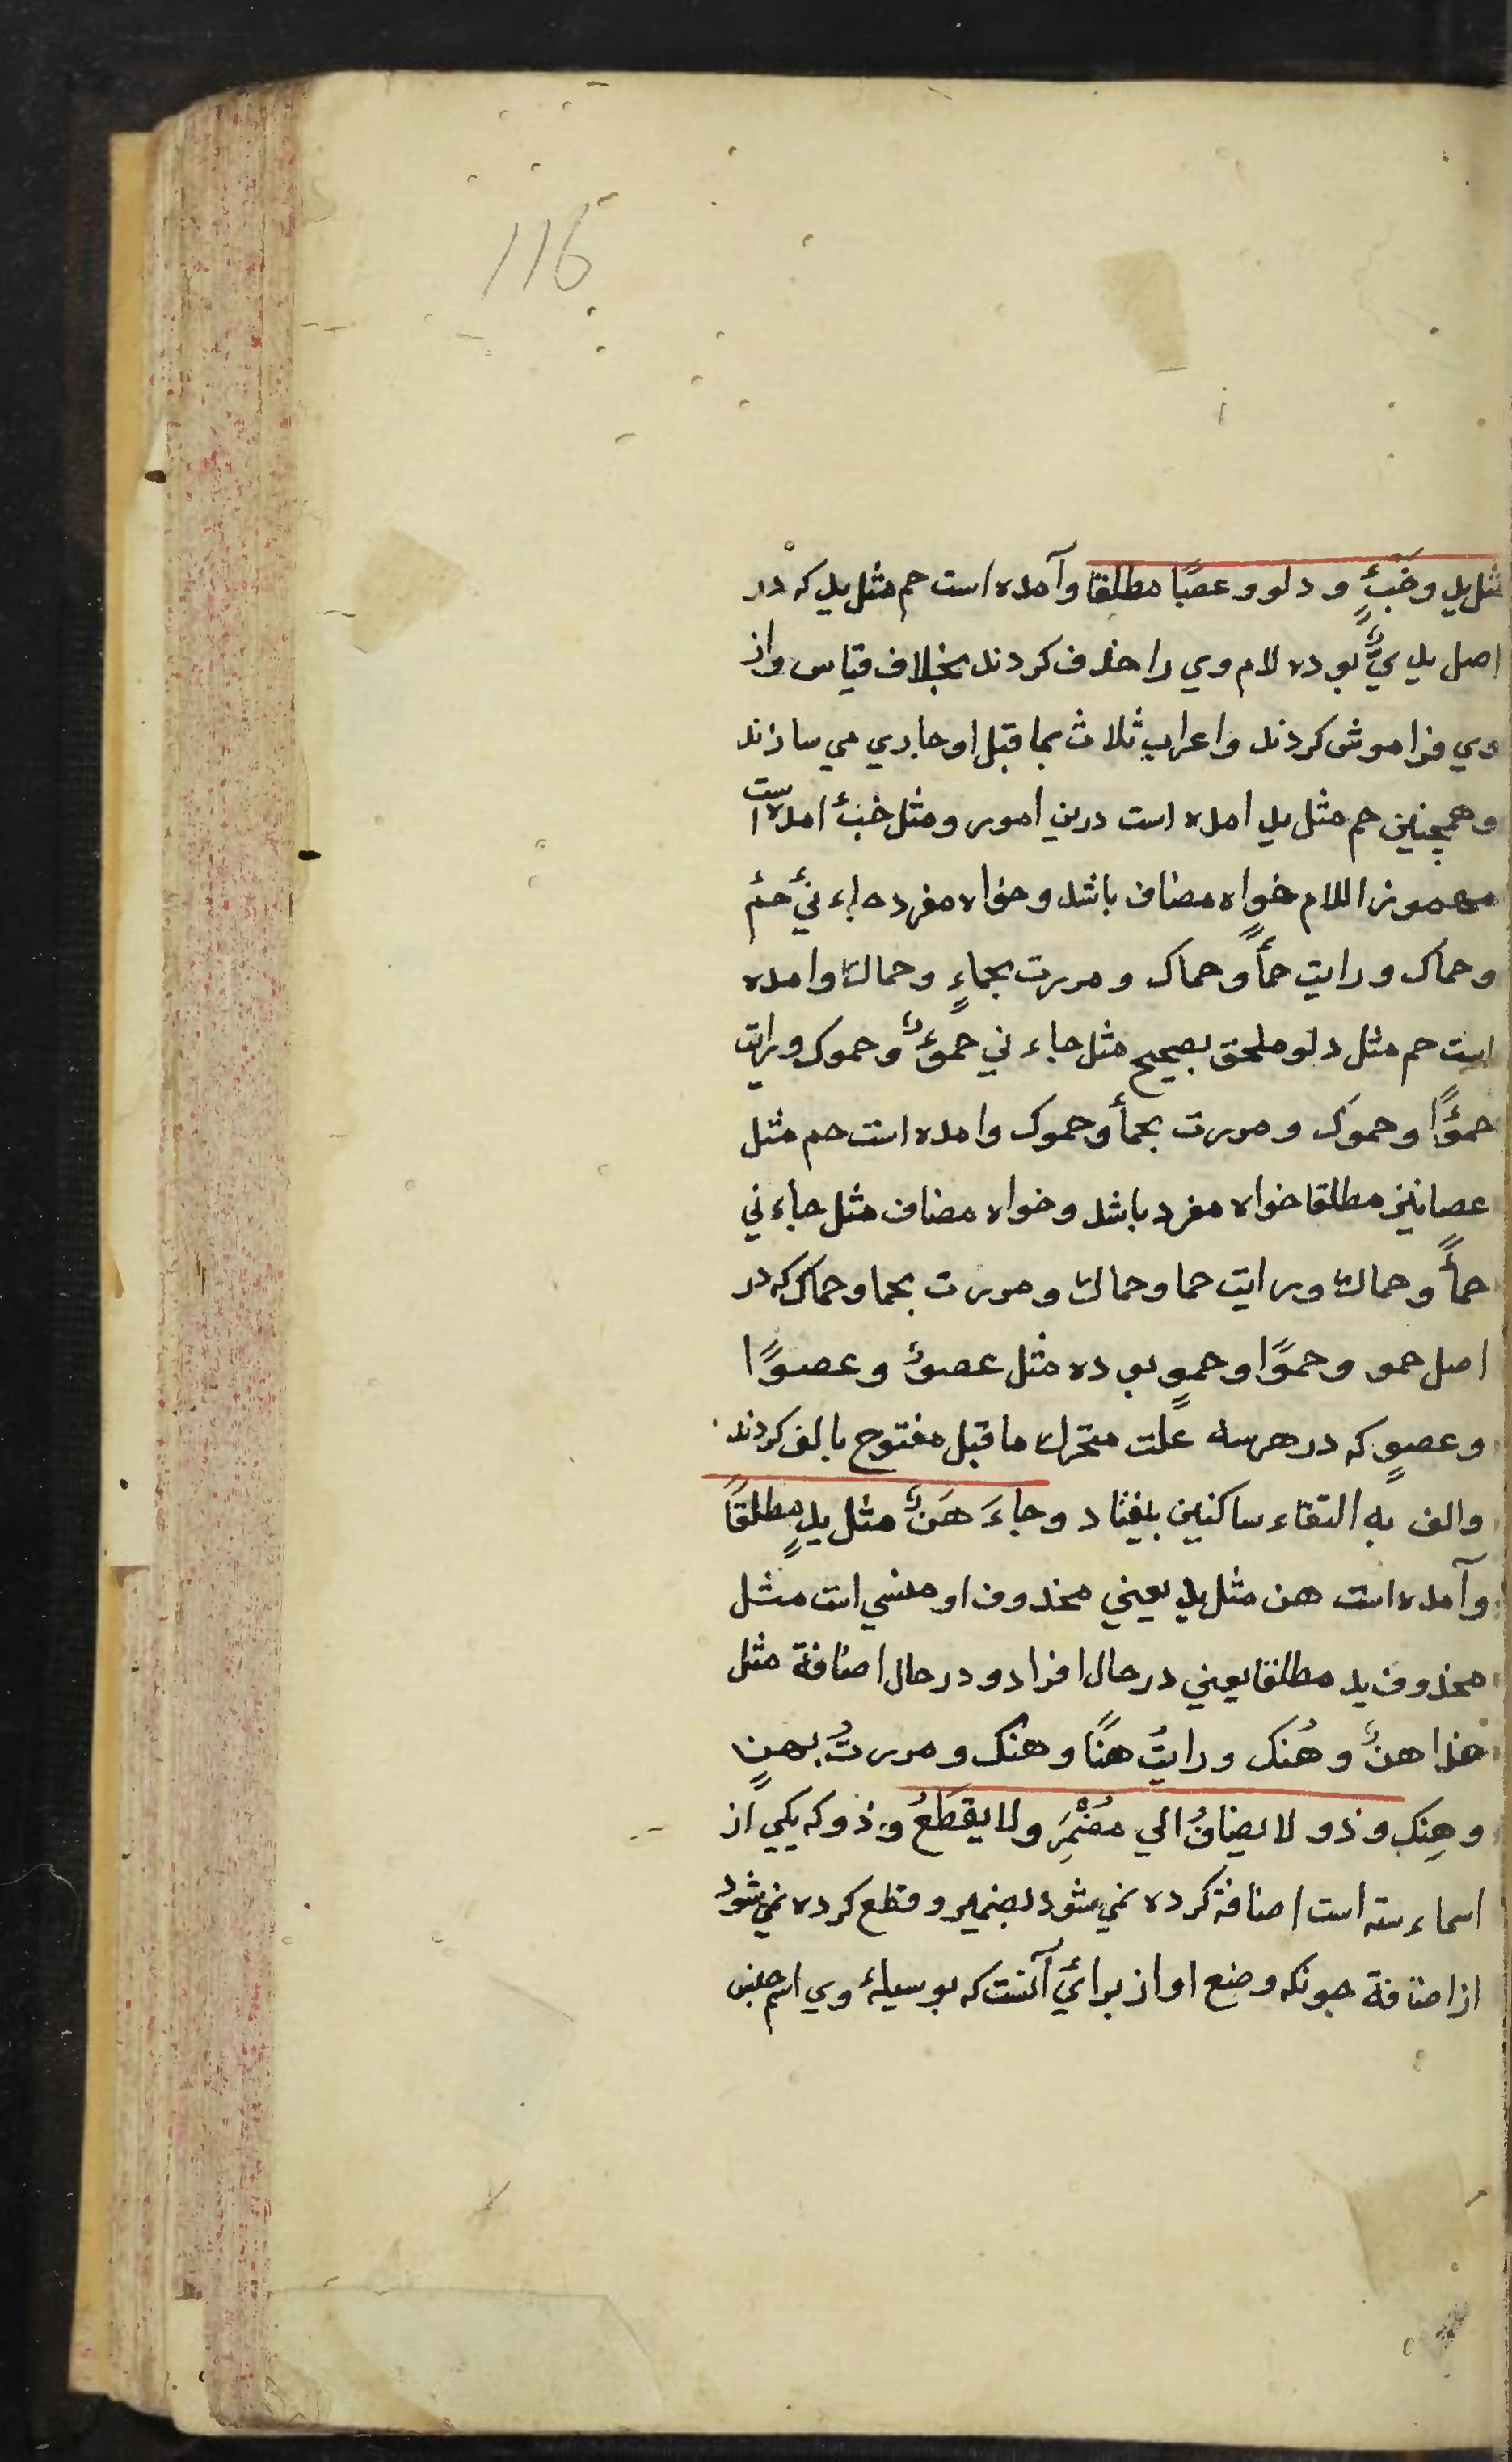 116
مثل يد وخَبْءٍ ودلو وعصًا مطلقا وآمده است حم مثل يد که در
اصل يديٌ بوده لام وي را حذف کردند بخلاف قياس واز
وي فراموش کردند واعراب ثلاث بما قبل او جاري مي سازند
وهمچنين حم مثل يد امده است درين امور ومثل خبء امده است
مهموز اللام خواه مضاف باشد وخواه مفرد جاء نيْ حمٔ
وحماک ورايت حمأً وحماک ومررت بحماءٍ وحماک وامده
است حم مثل دلو ملحق بصحيح مثل جاء ني حمؤٌ وحموک ورايت
حمؤًا وحموَک ومررت بحمأ وحموک وامده است حم مثل
عصا نيز مطلقا خواه مفرد باشد وخواه مضاف مثل جاء ني
حمأً وحماک ورايت حما وحماک ومررت بحما وحماک که در
اصل حمو وحموًا وحموٍ بوده مثل عصوٌ وعصوًا
وعصوٍ که در هرسه علت متحرک ما قبل مفتوح بالف کردند
والف به التقاء ساکنين بيفتاد وجاءَ هَنٌ مثل يدٍ مطلقًا
وآمده است هن مثل يد يعني محذوف او منسي است مثل
محذوف يد مطلقا يعني در حال افراد ودر حال اضافة مثل
هذا هنٌ وهُنک ورايتُ هنًا وهنک ومررتُ بهنٍ
وهِنِک وذو لا يضافُ الي مُضْمَرِ ولا يقطَعُ وذو که يکي از
اسماء سته است اضافة کرده نمي شود بضمير وقطع کرده نمي شود
از اضافة چونکه وضع او از برائي آنست که بوسيلۀ وي اسم جنس